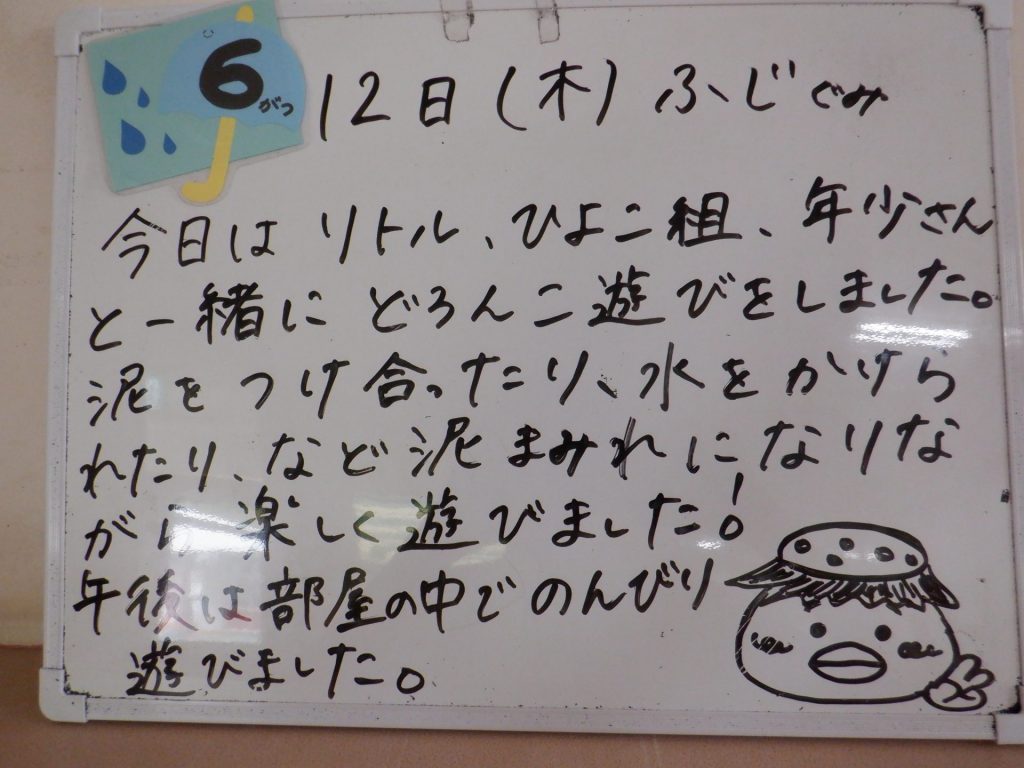 6がつ 12日(木) ふじぐみ
今日は リトル、ひよこ組、年少さん
と一緒に どろんこ遊びをしました。
泥をつけ合ったり、水をかけら
れたり、など泥まみれになりな
がら楽しく遊びました!
午後は部屋の中でのんびり
遊びました。